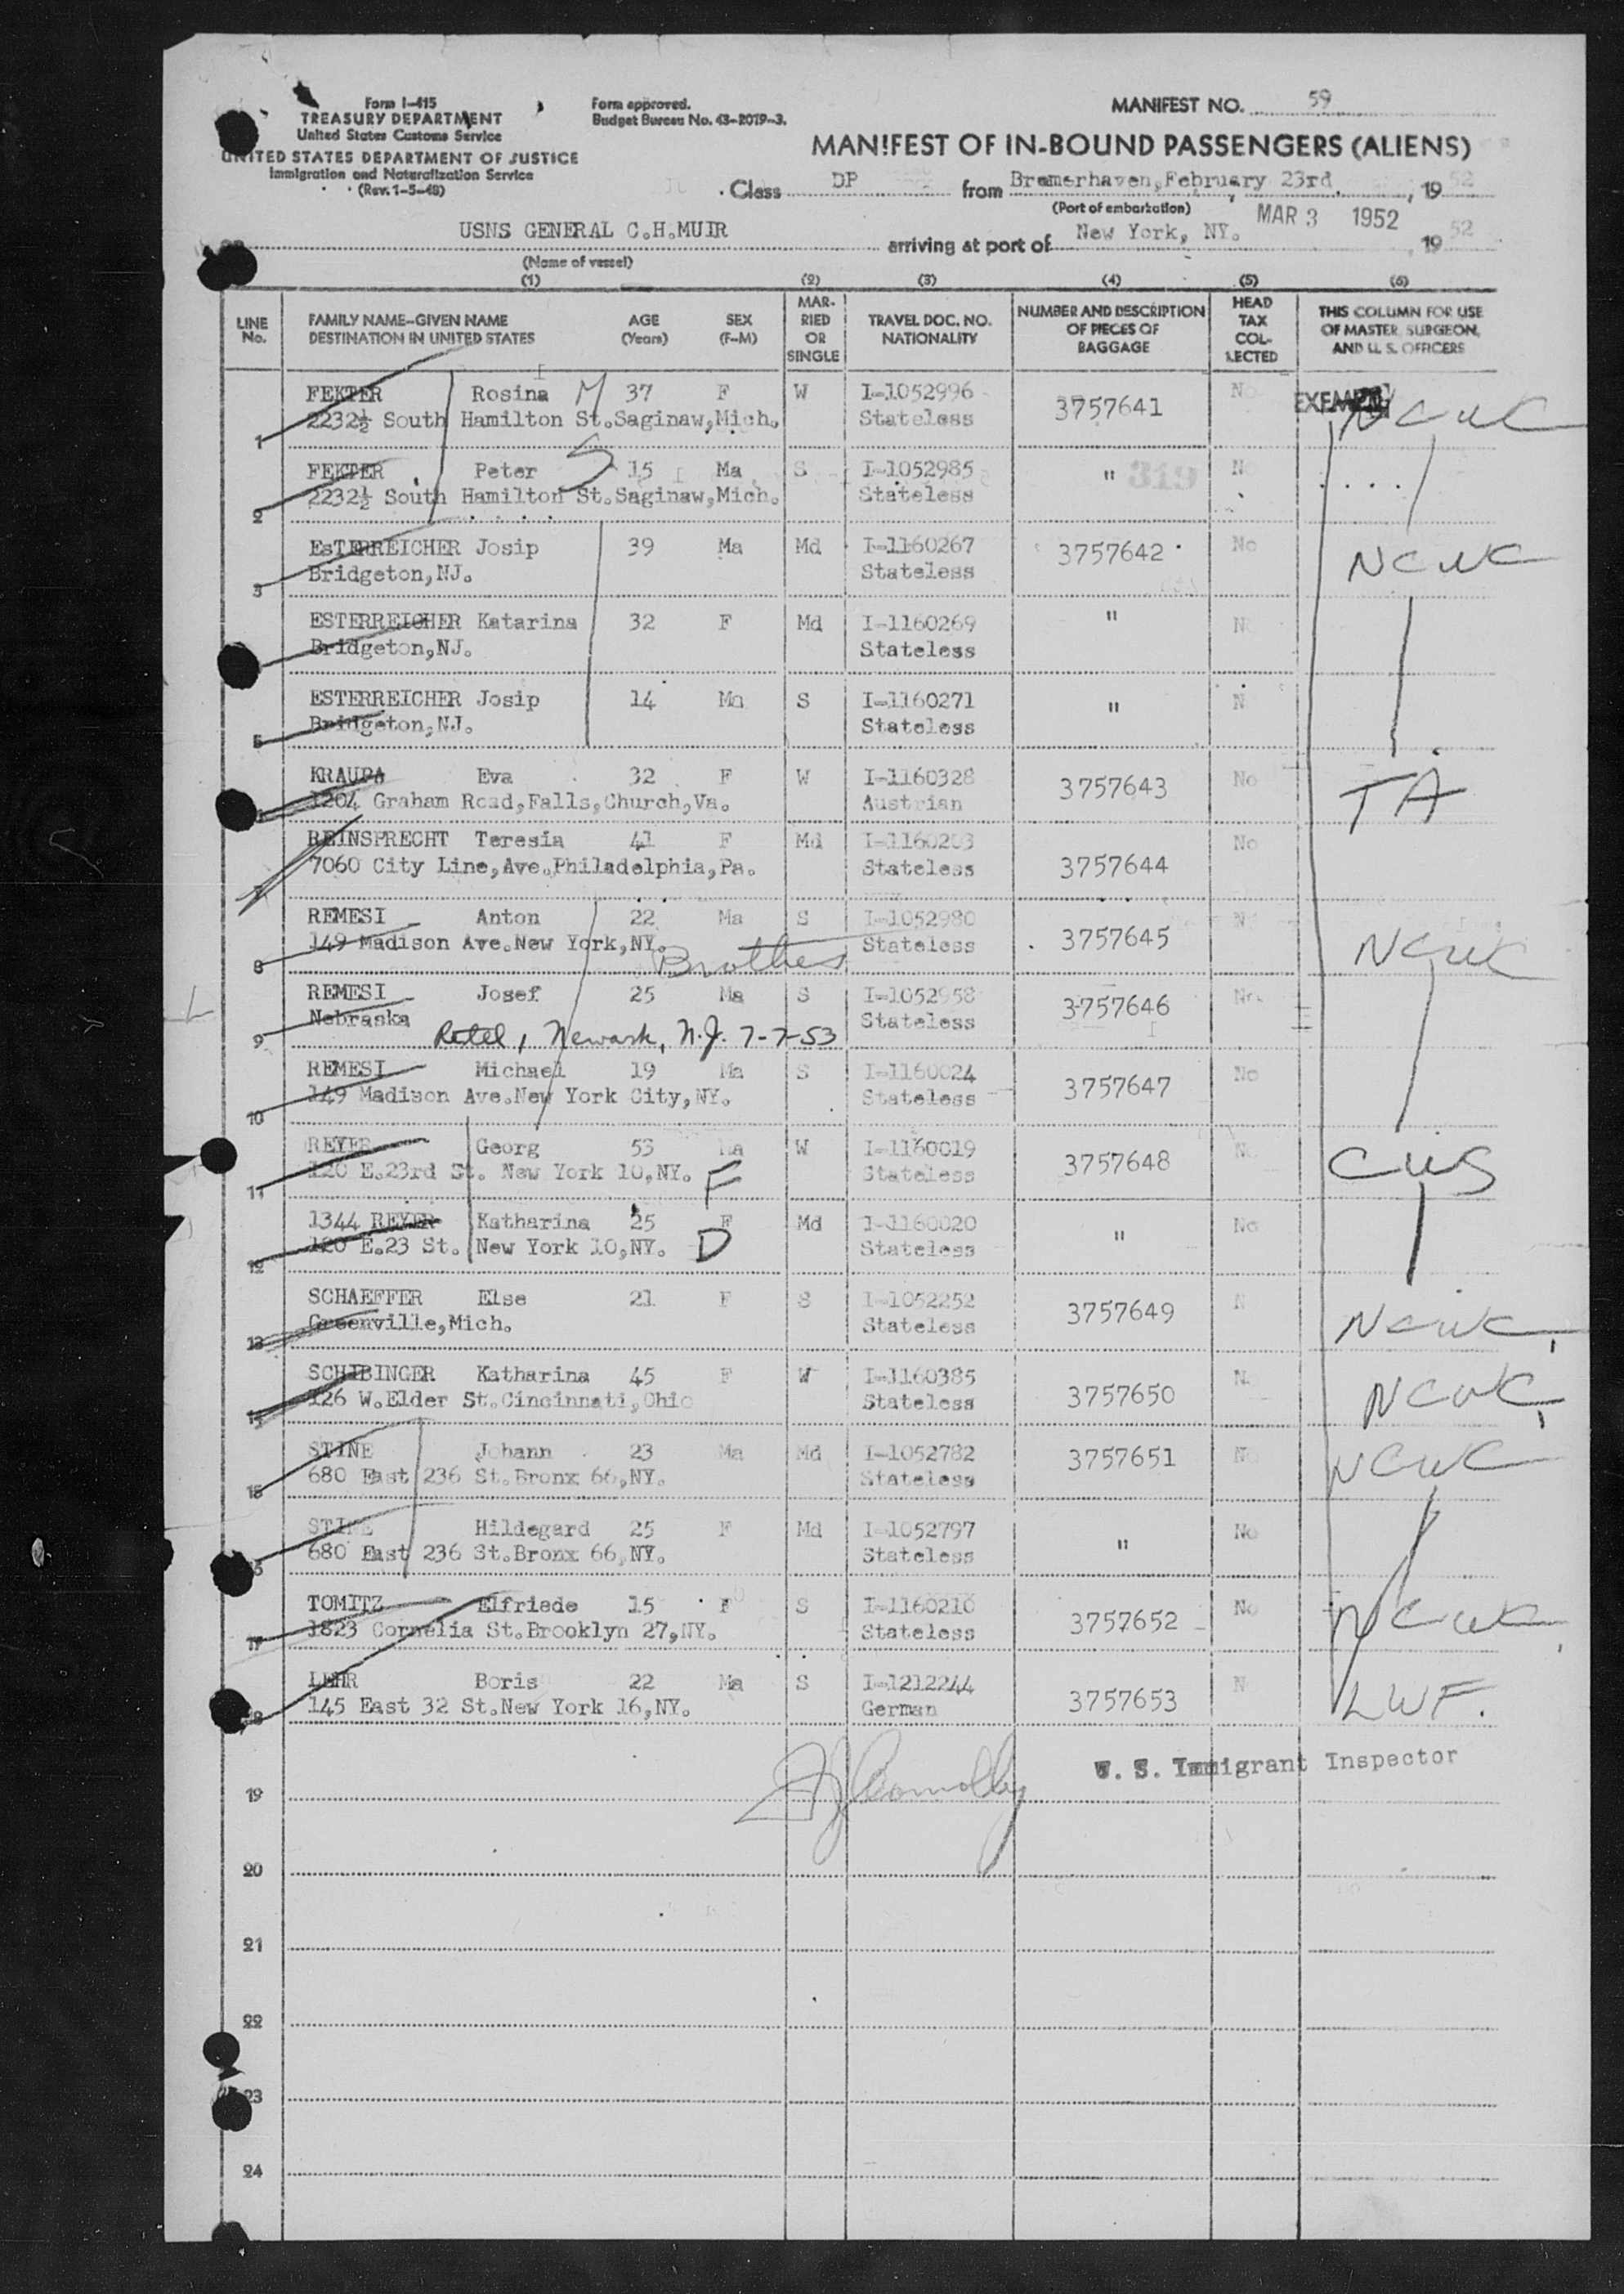 Form I-415
TREASURY DEPARTMENT
United States Customs Service
UNITED STATES DEPARTMENT OF JUSTICE
Immigration and Naturalization Service
(Rev. 1-5-48)
Form approved.
Budget Bureau No. 43-2019-3.
MANIFEST NO. 59
MANIFEST OF IN-BOUND PASSENGERS (ALIENS)
Class DP from Bremerhaven, February 23rd, 1952
(Port of embarkation)
USNS GENERAL C.H.MUIR arriving at port of New York, NY. MAR 3 1952 1952
(Name of vessel)
(1) (2) (3) (4) (5) (6)
LINE No. FAMILY NAME-GIVEN NAME DESTINATION IN UNITED STATES AGE (Years) SEX (F-M) MARRIED OR SINGLE TRAVEL DOC. NO. NATIONALITY NUMBER AND DESCRIPTION OF PIECES OF BAGGAGE HEAD TAX COLLECTED THIS COLUMN FOR USE OF MASTER, SURGEON, AND U. S. OFFICERS
FEKTER Rosina M 37 F W I-1052996 3757641 No EXEMPT NCWC
1 2232½ South Hamilton St.Saginaw,Mich. Stateless
FEKTER Peter S 15 Ma S I-1052985 " 319 No
2 2232½ South Hamilton St.Saginaw,Mich. Stateless
EsTERREICHER Josip 39 Ma Md I-1160267 3757642 No NCWC
3 Bridgeton,NJ. Stateless
ESTERREICHER Katarina 32 F Md I-1160269 " No
Bridgeton,NJ. Stateless
ESTERREICHER Josip 14 Ma S I-1160271 " N
5 Bridgeton,NJ. Stateless
KRAUPA Eva 32 F W I-1160328 3757643 No TA
1204 Graham Road,Falls,Church,Va. Austrian
REINSPRECHT Teresia 41 F Md 3757644 No
7 7060 City Line,Ave.Philadelphia,Pa. Stateless
REMESI Anton 22 Ma S I-1052980 3757645 N NCWC
8 149 Madison Ave.New York,NY. Brothers Stateless
REMESI Josef 25 Ma S I-1052958 3757646 No
9 Nebraska Stateless
Newark, N.J. 7-7-53
REMESI Michael 19 Ma S I-1160024 3757647 No
10 149 Madison Ave.New York City,NY. Stateless
REYER Georg 53 Ma W I-1160019 3757648 N CWS
11 120 E.23rd St. New York 10,NY. F Stateless
1344 REYER Katharina 25 F Md I-1160020 " No
12 120 E.23 St. New York 10,NY. D Stateless
SCHAEFFER Else 21 F S I-1052252 3757649 N NCWC
13 Greenville,Mich. Stateless
SCHIBINGER Katharina 45 F W I-1160385 3757650 N NCWC
14 126 W.Elder St.Cincinnati,Ohio Stateless
STINE Johann 23 Ma Md I-1052782 3757651 No NCWC
15 680 East 236 St.Bronx 66,NY. Stateless
STINE Hildegard 25 F Md I-1052797 " No
680 East 236 St.Bronx 66,NY. Stateless
TOMITZ Elfriede 15 F S I-1160210 3757652 No NCWC
17 1823 Cornelia St.Brooklyn 27,NY. Stateless
LEHR Boris 22 Ma S I-1212244 3757653 N LWF.
145 East 32 St.New York 16,NY. German
U. S. Immigrant Inspector
19
20
21
22
23
24